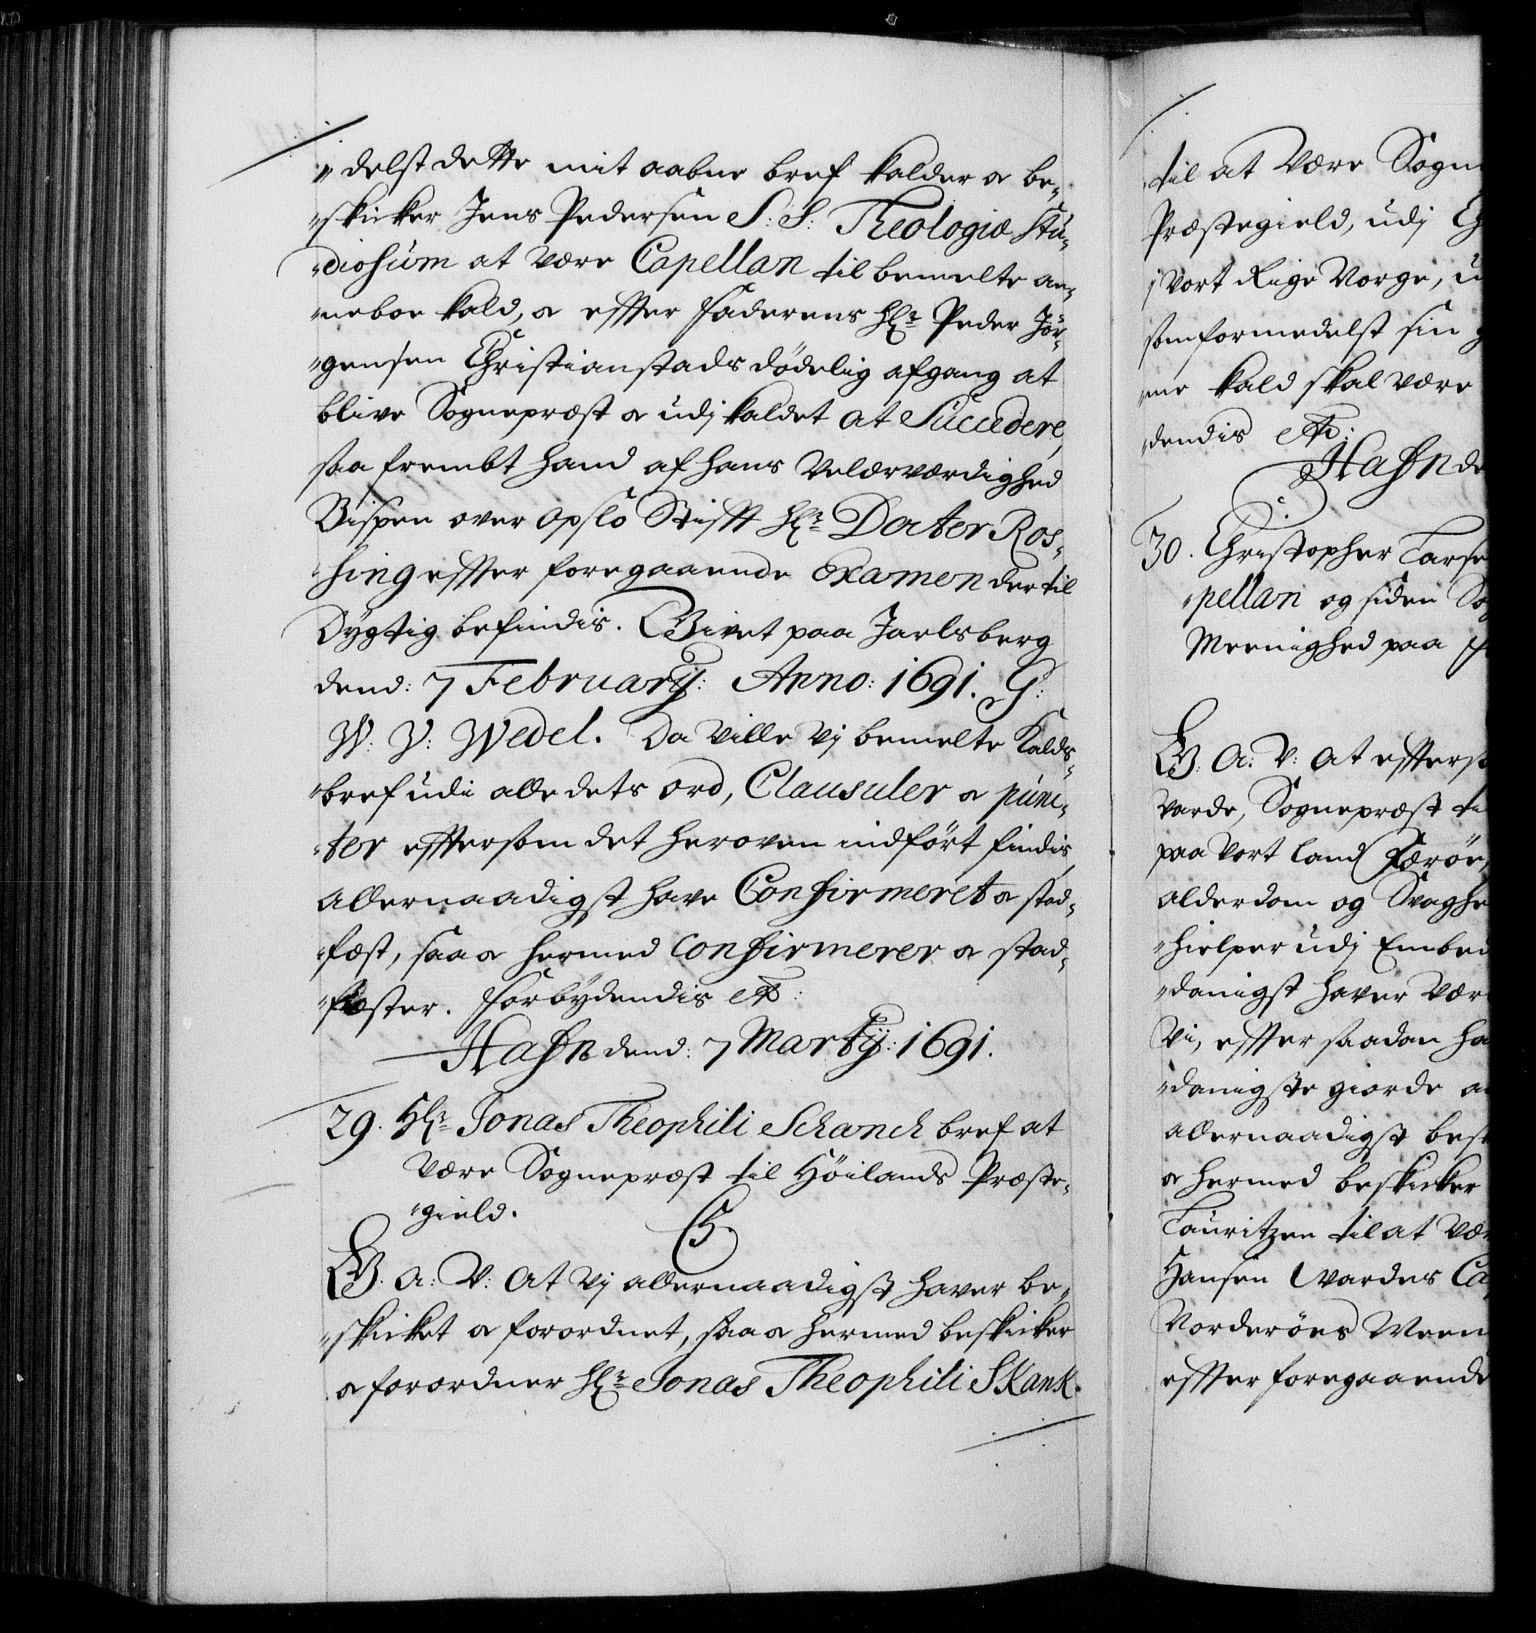 "delst dette mit aabne bref kalder a be-
"skicker Jens Pedersen S: S: Theologiæ Stu-
"diosum at være Capellan til bemelte an-
"neboe kald, a effter faderens Hr: Peder Jör-
"gensen Christianstads dödelig afgang at
blive Sognepræst a udj kaldet at Succedere,
saa frembt hand af hans Velærværdighed
Bispen over Opslo Stifft Hr: Docter Ros-
hing effter foregaaende Examen der til
Dygtig befindis. Givet paa Jarlsberg
dend: 7 Februarij: Anno: 1691. G:
W: V: Wedel. Da ville Vj bemelte Kalds-
"bref udi alle dets ord, Clausuler a punc-
"ter efftersom det heroven indfört findis,
allernaadigst have Confirmeret a stad-
"fæst, saa a hermed Confirmerer a stad-
"fæster. Forbydendis etc:
Hafn dend: 7 Martij: 1691.
29. Hr: Jonas Theophili Schanck bref at
være Sognepræst til Höilands Præste-
"gield.
C5.
G. A: V: At Vj allernaadigst haver be-
"skicket a forordnet, saa a hermed beskicker
a forordner Hr: Jonas Theophili Skank.
til at være Sogn
Præstegield, udj
j Vort Rige Norge, u
som formedelst sin g
"ne kald skal være
"dendis etc:
Hafn de
30. Christopher Larse
"pellan og siden So
Meenighed paa
G. A: V: At effterso
Varde, Sognepræst ti
paa Vort land Færöe,
alderdom og Svaghe
"hielper udj Embed
"danigst haver være
Vi, effter saadan ha
"danigste giorde an
allernaadigst besk
a hermed beskicker
Lauritzen til at vær
Hansen Wardes Ca
Norderöes Meen
effter foregaaende